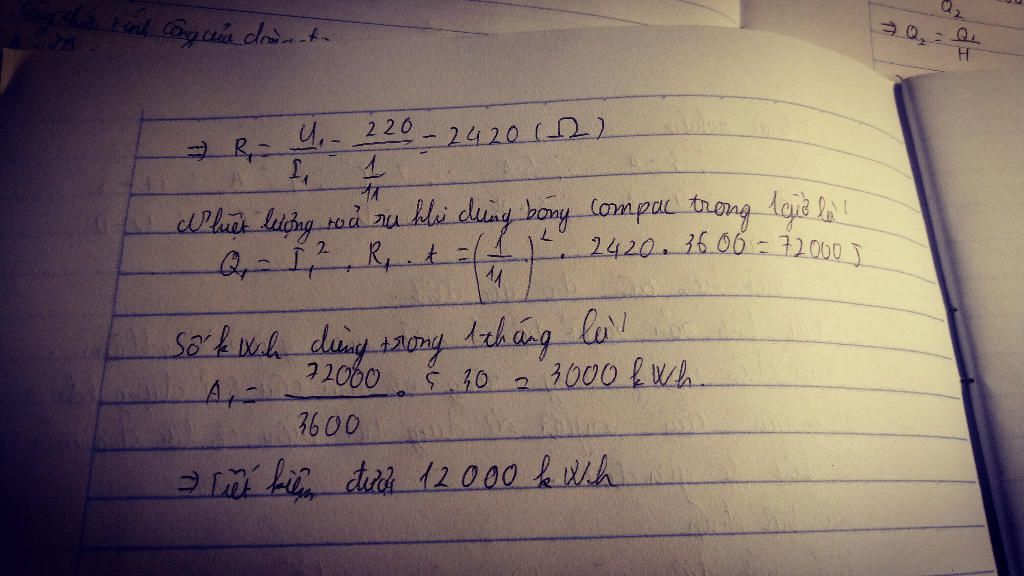 Công thức tính công của dòng
Q₂
⇒ Q₂ = Q₁/H
⇒ R₁ = U₁/I₁ = 220/(1/11) = 2420 (Ω)
Nhiệt lượng toả ra khi dùng bóng compac trong 1 giờ là:
Q₁ = I₁² . R₁ . t = (1/11)² . 2420 . 3600 = 72000 J
Số kW.h dùng trong 1 tháng là:
A₁ = 72000/3600 . 5 . 30 = 3000 kWh.
⇒ Tiết kiệm được 12000 kW.h